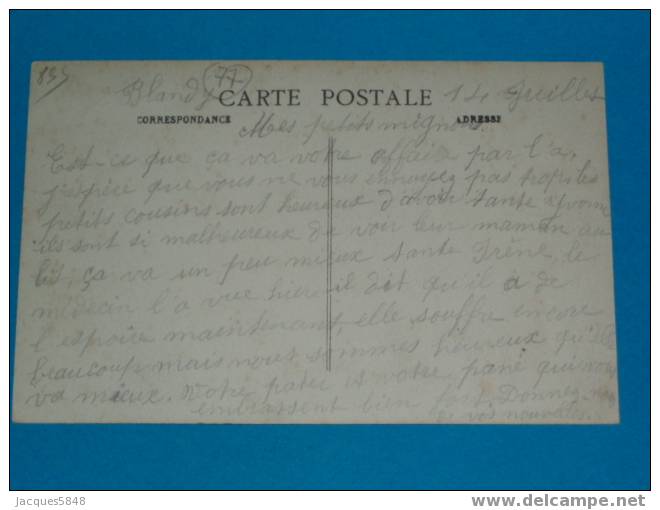 899
Blandy 77 CARTE POSTALE 14 Juilles
CORRESPONDANCE ADRESSE
Mes petits mignons
Est-ce que ça va votre affaire par l'a,
j'espèce que vous ne vous ennuyez pas trop, les
petits cousins sont heureux d'avoir tante Yvonne
ils sont si malheureux de voir leur maman au
lit, ça va un peu mieux tante Irène, le
médecin l'a vue hier il dit qu'il a de
l'espoire maintenant, elle souffre encore
beaucoup mais nous sommes heureux qu'elle
va mieux. Votre pater et votre pane qui vous
embrassent bien fort. Donnez-nous
de vos nouvelles.
Jacques5848
delcampe.net